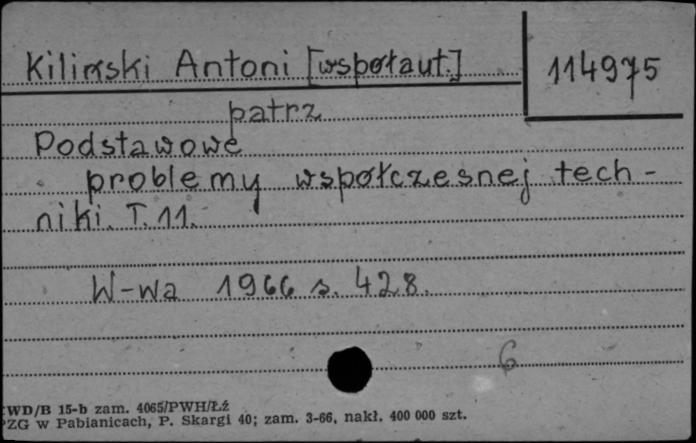 Kiliński Antoni [współaut.]
114975
patrz
Podstawowe
problemy współczesnej tech-
niki. T. 11.
W-wa 1966 s. 428.
6
WD/B 15-b zam. 4065/PWH/Łź
PZG w Pabianicach, P. Skargi 40; zam. 3-66, nakł. 400 000 szt.